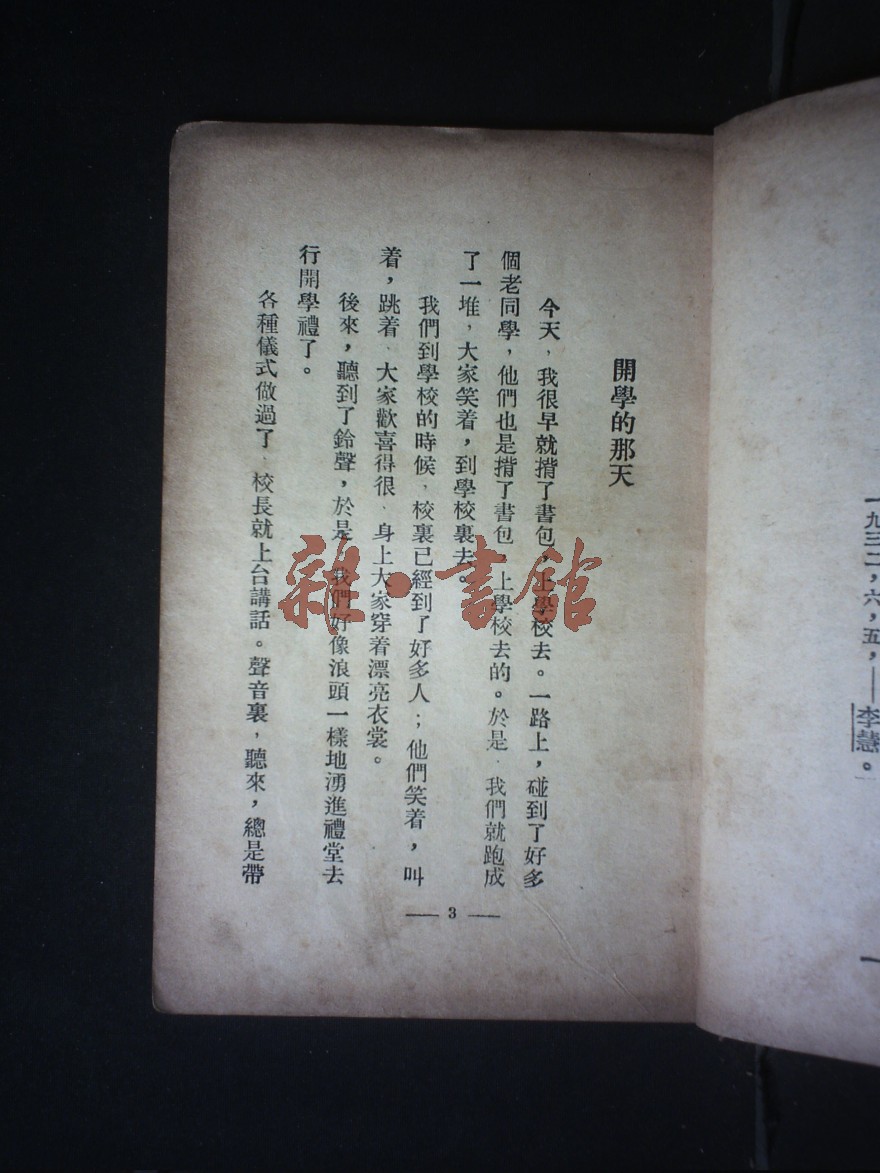 一九三二，六，五，——李慧。
一
開學的那天
今天，我很早就揹了書包，上學校去。一路上，碰到了好多
個老同學，他們也是揹了書包，上學校去的。於是，我們就跑成
了一堆，大家笑着，到學校裏去。
我們到學校的時候，校裏已經到了好多人；他們笑着，叫
着，跳着、大家歡喜得很、身上大家穿着漂亮衣裳。
後來，聽到了鈴聲，於是，我們好像浪頭一樣地湧進禮堂去
行開學禮了。
各種儀式做過了，校長就上台講話。聲音裏，聽來，總是帶
— 3 —
雜·書館